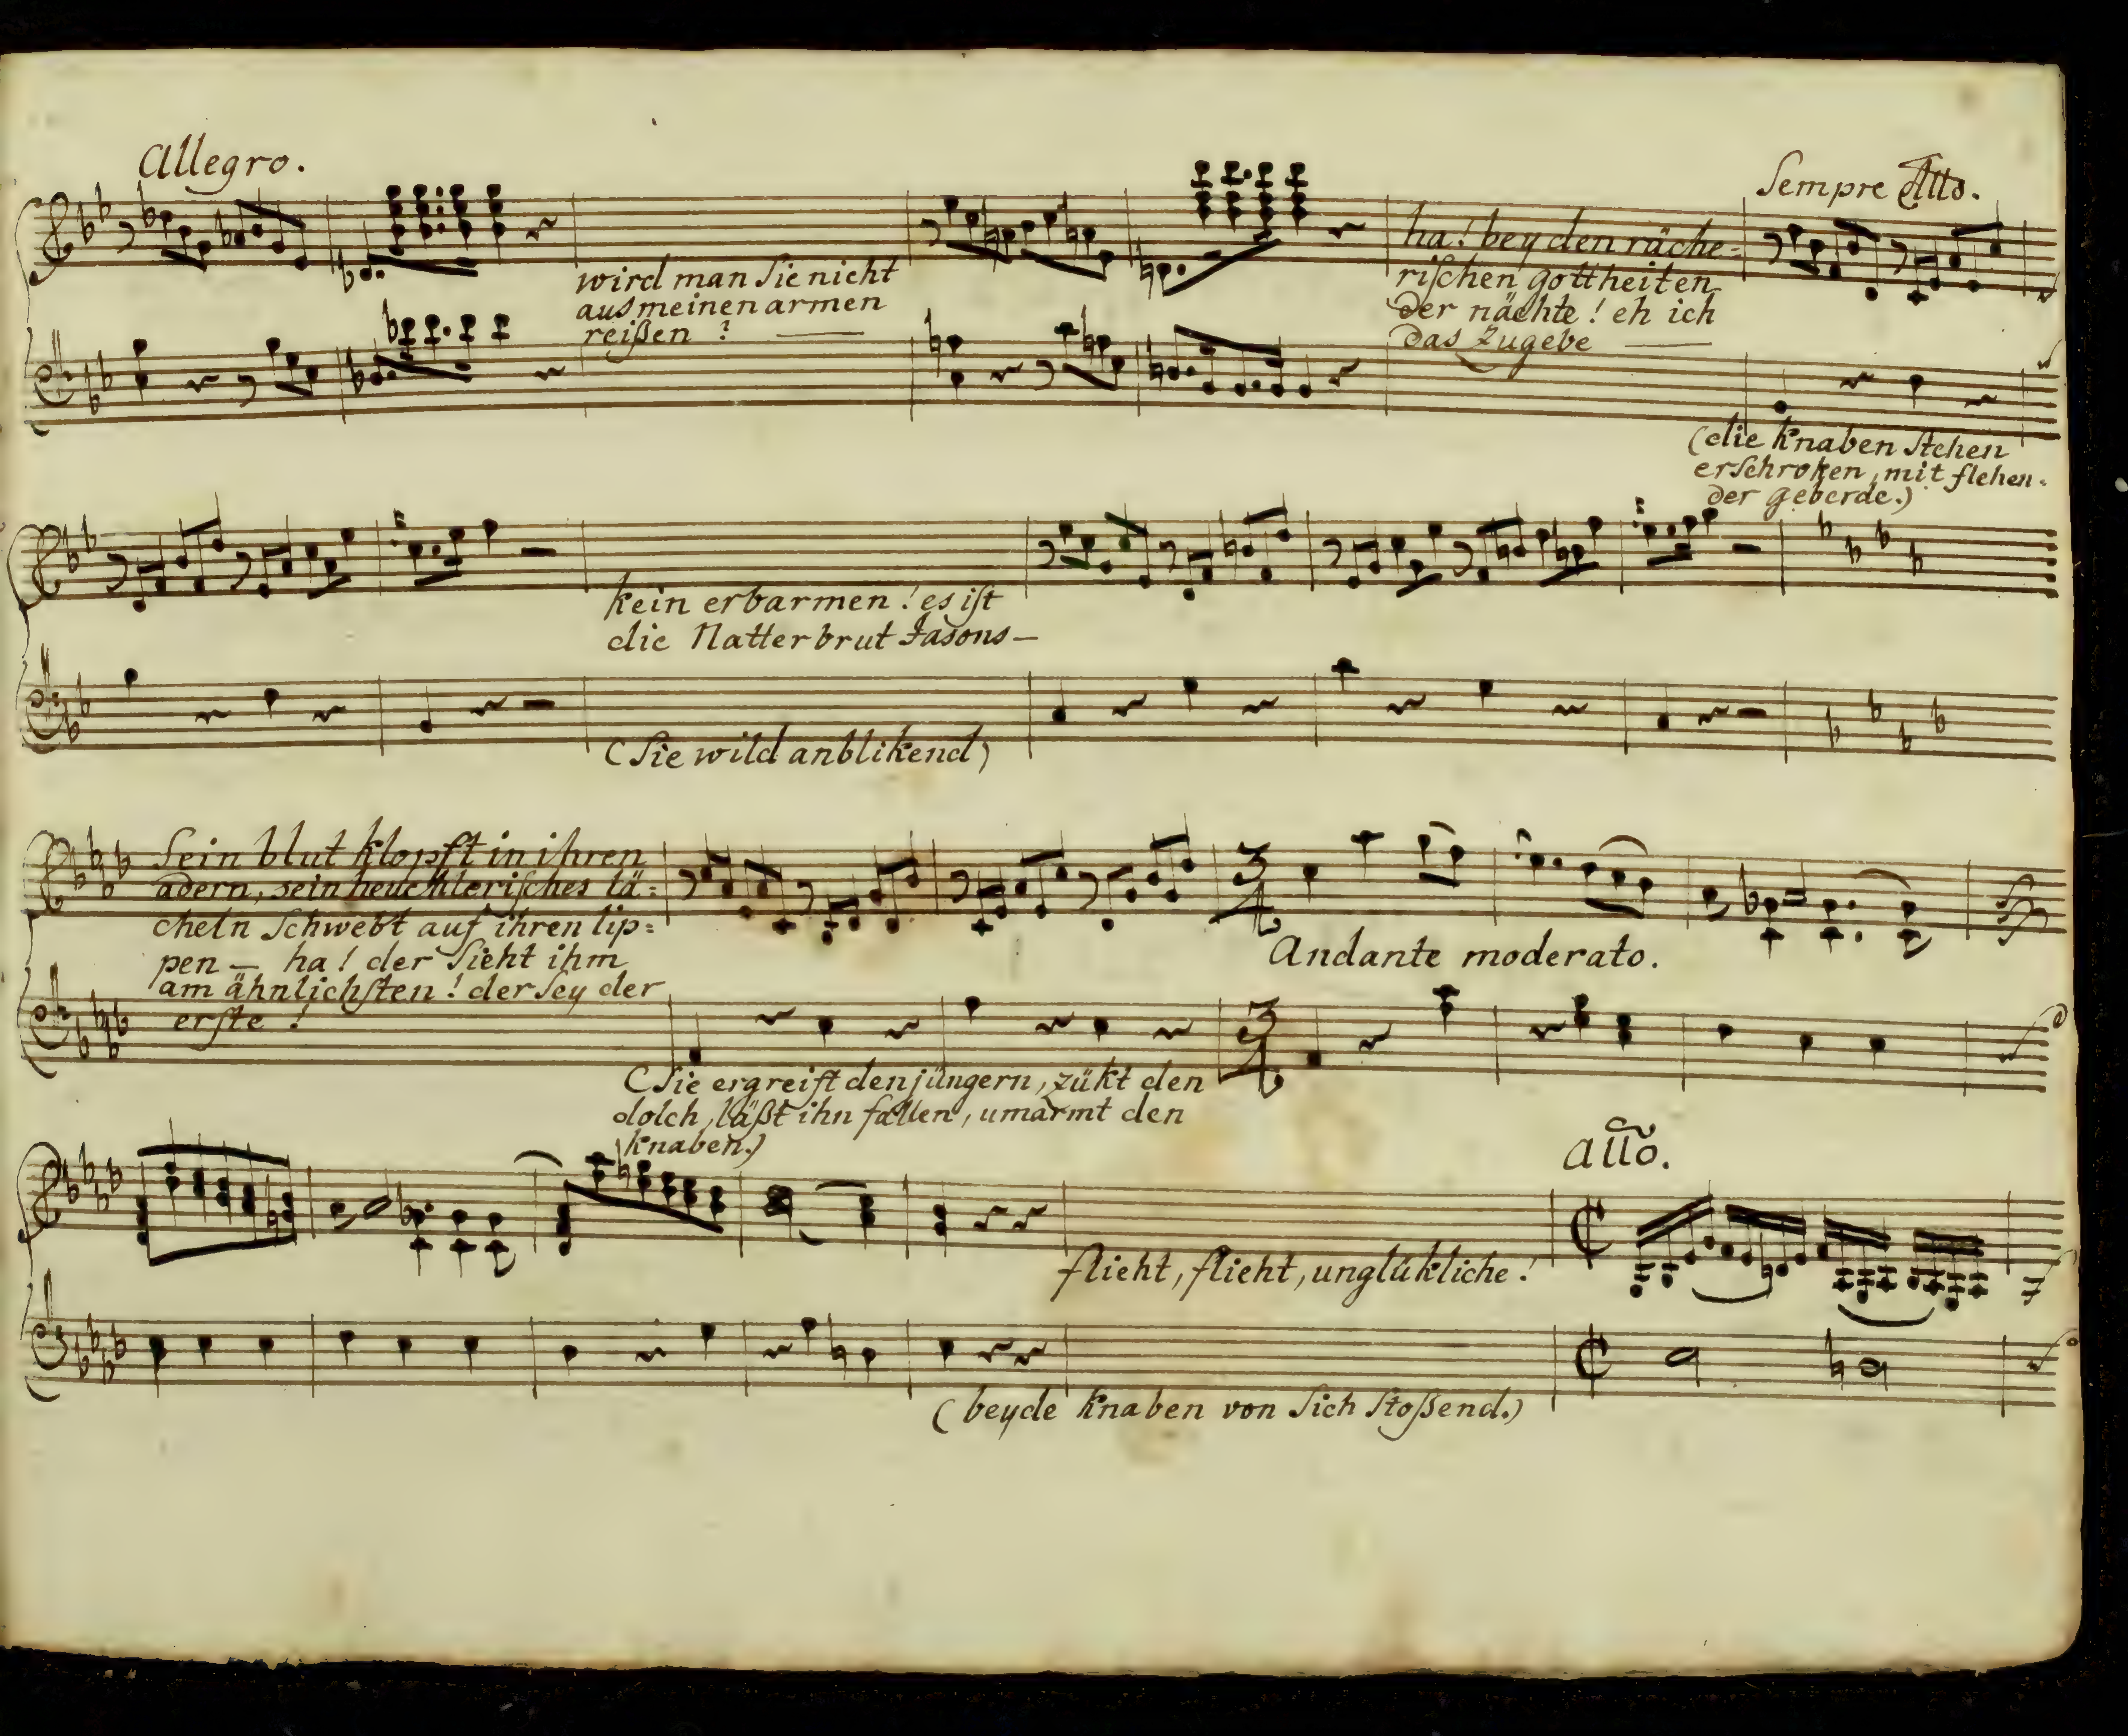 Allegro.
Sempre Allo.
wird man Sie nicht
aus meinen armen
reißen? —
ha! bey den räche=
rischen gottheiten
der nächte! eh ich
das zugebe —
(die knaben stehen
erschroken, mit flehen=
der geberde.)
kein erbarmen! es ist
die Natterbrut Jasons —
(Sie wild anblikend)
Sein blut klopft in ihren
adern, sein heuchlerisches lä=
cheln schwebt auf ihren lip=
pen — ha! der sieht ihm
am ähnlichsten! der sey der
erste!
(Sie ergreift den jüngern, zükt den
dolch, läßt ihn fallen, umarmt den
knaben.)
3
4
Andante moderato.
3
4
allo.
flieht, flieht, unglükliche!
(beyde knaben von sich stoßend.)